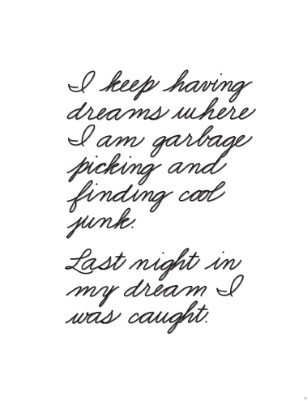 I keep having
dreams where
I am garbage
picking and
finding cool
junk.
Last night in
my dream I
was caught.